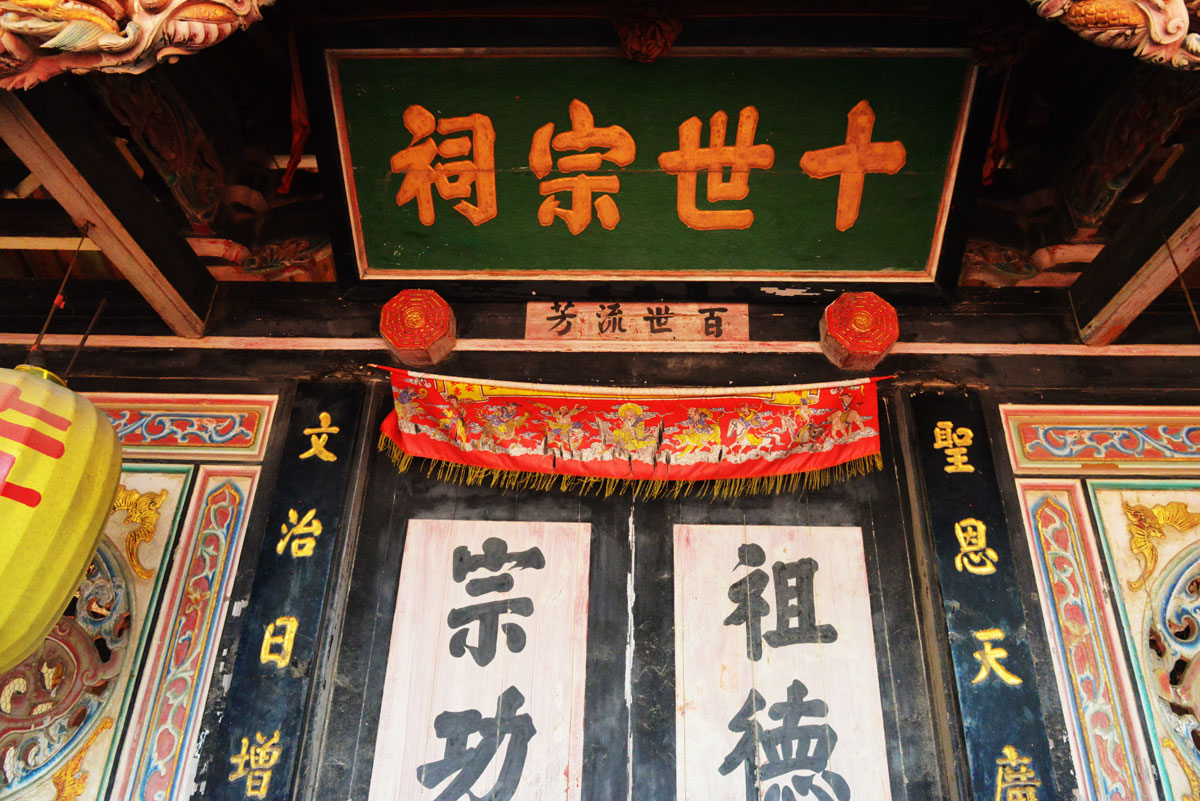 十世宗祠
百世流芳
聖恩天廣
祖德
宗功
文治日增